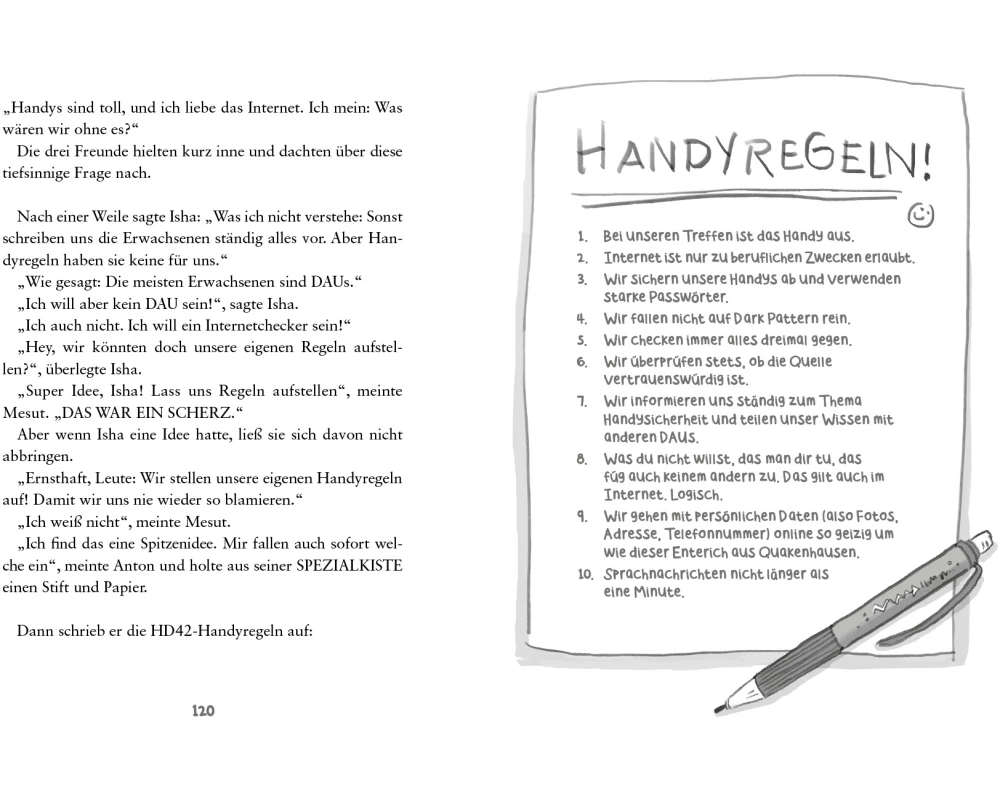 „Handys sind toll, und ich liebe das Internet. Ich mein: Was
wären wir ohne es?“
Die drei Freunde hielten kurz inne und dachten über diese
tiefsinnige Frage nach.
Nach einer Weile sagte Isha: „Was ich nicht verstehe: Sonst
schreiben uns die Erwachsenen ständig alles vor. Aber Han-
dyregeln haben sie keine für uns.“
„Wie gesagt: Die meisten Erwachsenen sind DAUs.“
„Ich will aber kein DAU sein!“, sagte Isha.
„Ich auch nicht. Ich will ein Internetchecker sein!“
„Hey, wir könnten doch unsere eigenen Regeln aufstel-
len?“, überlegte Isha.
„Super Idee, Isha! Lass uns Regeln aufstellen“, meinte
Mesut. „DAS WAR EIN SCHERZ.“
Aber wenn Isha eine Idee hatte, ließ sie sich davon nicht
abbringen.
„Ernsthaft, Leute: Wir stellen unsere eigenen Handyregeln
auf! Damit wir uns nie wieder so blamieren.“
„Ich weiß nicht“, meinte Mesut.
„Ich find das eine Spitzenidee. Mir fallen auch sofort wel-
che ein“, meinte Anton und holte aus seiner SPEZIALKISTE
einen Stift und Papier.
Dann schrieb er die HD42-Handyregeln auf:
120
HANDYREGELN!
1. Bei unseren Treffen ist das Handy aus.
2. Internet ist nur zu beruflichen Zwecken erlaubt.
3. Wir sichern unsere Handys ab und verwenden
starke Passwörter.
4. Wir fallen nicht auf Dark Pattern rein.
5. Wir checken immer alles dreimal gegen.
6. Wir überprüfen stets, ob die Quelle
vertrauenswürdig ist.
7. Wir informieren uns ständig zum Thema
Handysicherheit und teilen unser Wissen mit
anderen DAUs.
8. Was du nicht willst, das man dir tu, das
füg auch keinem andern zu. Das gilt auch im
Internet. Logisch.
9. Wir gehen mit persönlichen Daten (also Fotos,
Adresse, Telefonnummer) online so geizig um
wie dieser Enterich aus Quakenhausen.
10. Sprachnachrichten nicht länger als
eine Minute.